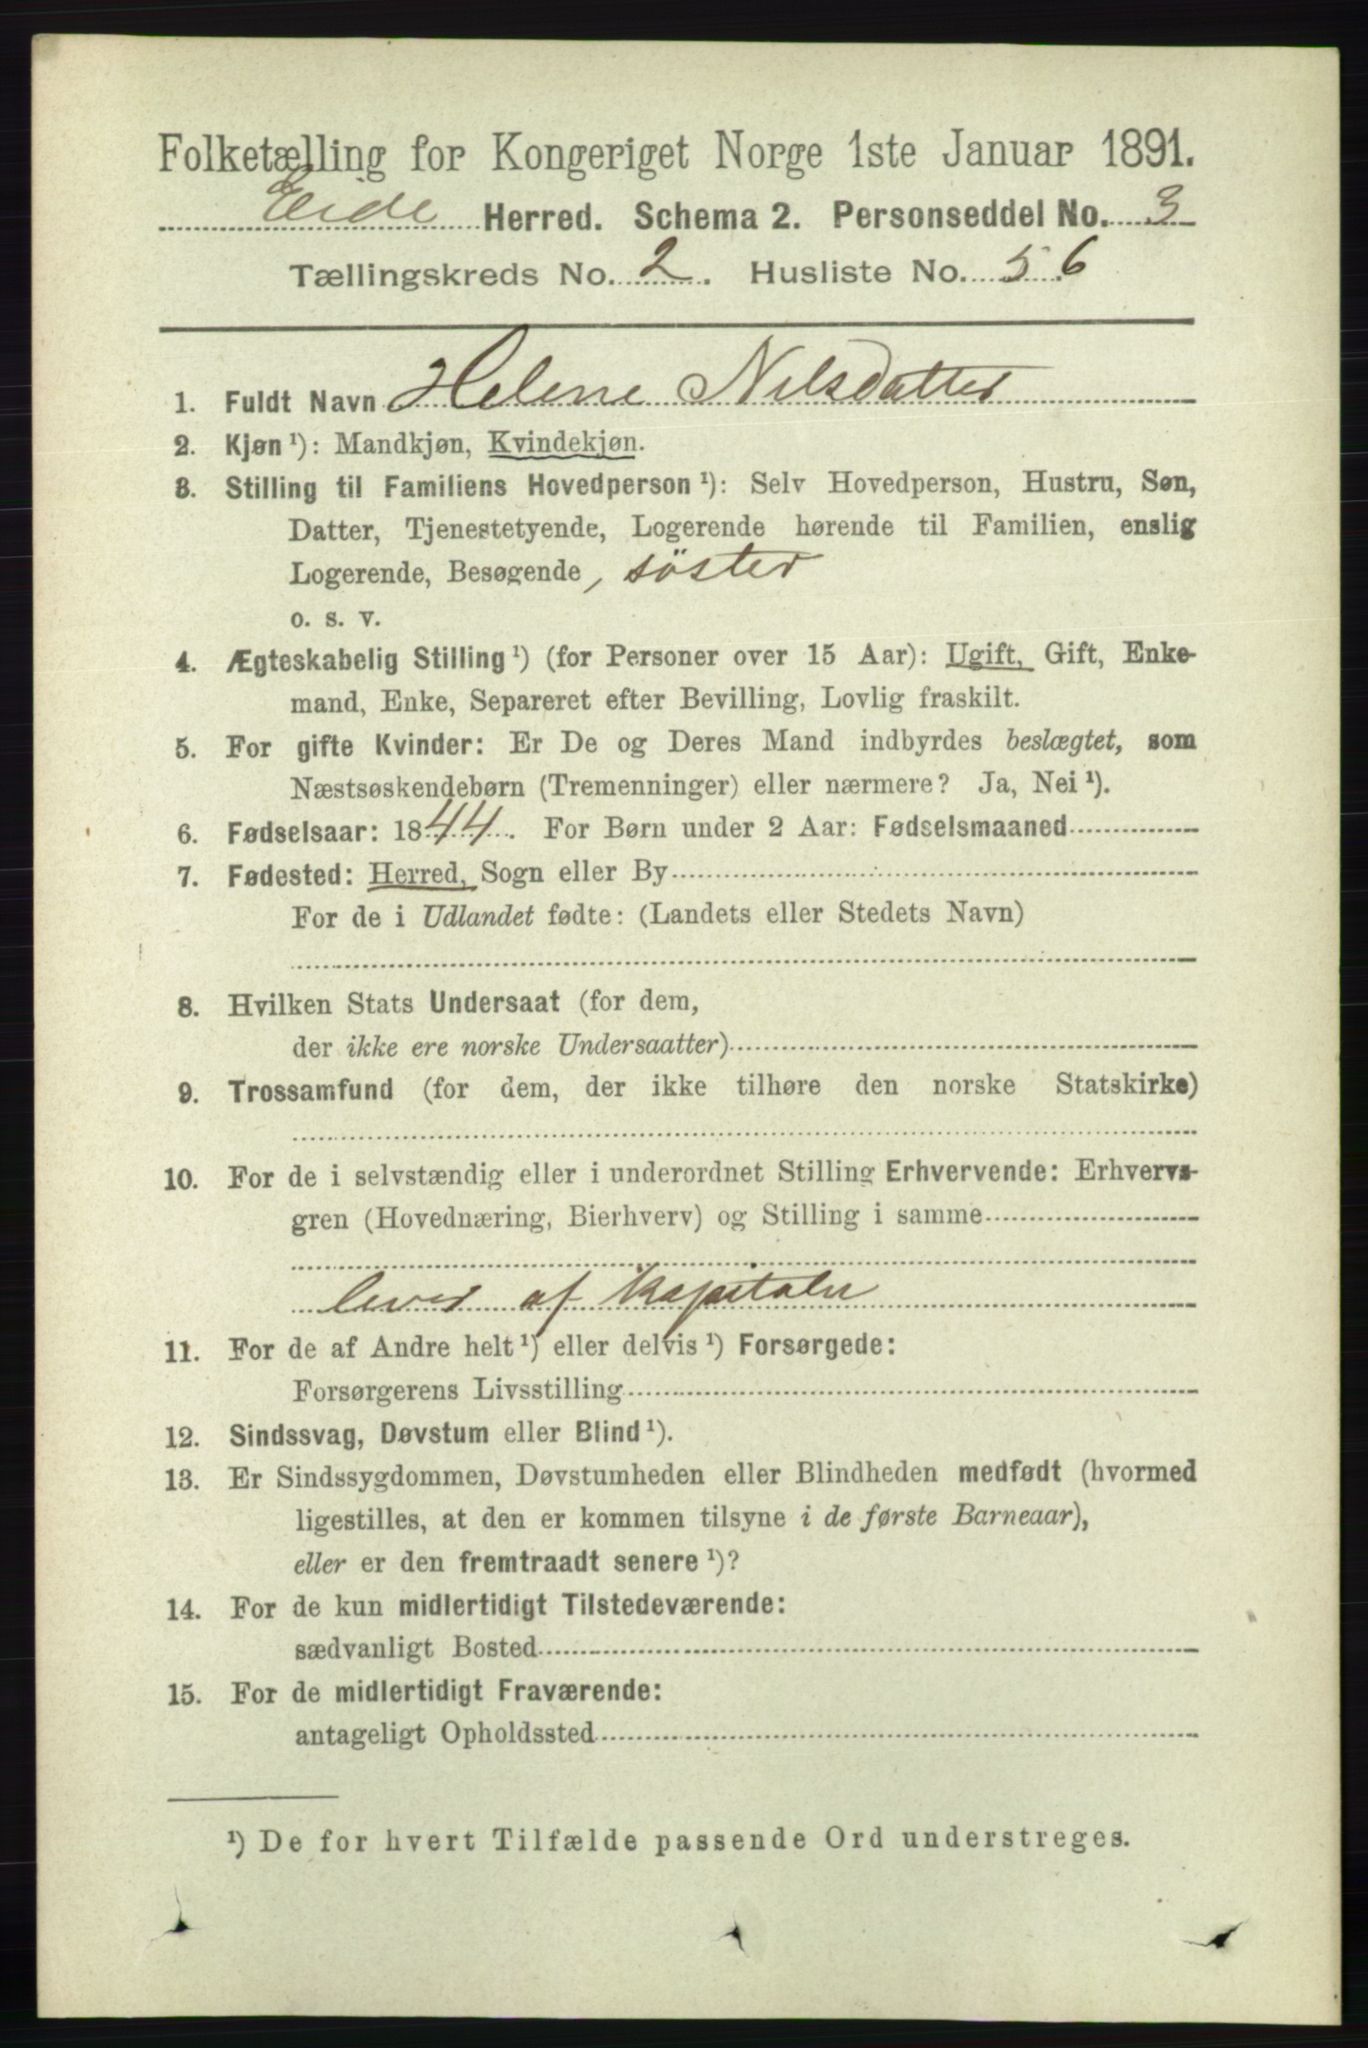 Folketælling for Kongeriget Norge 1ste Januar 1891.
Eide Herred. Schema 2. Personseddel No. 3
Tællingskreds No. 2. Husliste No. 56
1. Fuldt Navn Helene Nilsdatter
2. Kjøn ¹): Mandkjøn, Kvindekjøn.
3. Stilling til Familiens Hovedperson ¹): Selv Hovedperson, Hustru, Søn,
Datter, Tjenestetyende, Logerende hørende til Familien, enslig
Logerende, Besøgende, söster
o. s. v.
4. Ægteskabelig Stilling ¹) (for Personer over 15 Aar): Ugift, Gift, Enke-
mand, Enke, Separeret efter Bevilling, Lovlig fraskilt.
5. For gifte Kvinder: Er De og Deres Mand indbyrdes beslægtet, som
Næstsøskendebørn (Tremenninger) eller nærmere? Ja, Nei ¹).
6. Fødselsaar: 1844. For Børn under 2 Aar: Fødselsmaaned
7. Fødested: Herred, Sogn eller By
For de i Udlandet fødte: (Landets eller Stedets Navn)
8. Hvilken Stats Undersaat (for dem,
der ikke ere norske Undersaatter)
9. Trossamfund (for dem, der ikke tilhøre den norske Statskirke)
10. For de i selvstændig eller i underordnet Stilling Erhvervende: Erhvervs-
gren (Hovednæring, Bierhverv) og Stilling i samme
lever af kapitaler
11. For de af Andre helt ¹) eller delvis ¹) Forsørgede:
Forsørgerens Livsstilling
12. Sindssvag, Døvstum eller Blind ¹).
13. Er Sindssygdommen, Døvstumheden eller Blindheden medfødt (hvormed
ligestilles, at den er kommen tilsyne i de første Barneaar),
eller er den fremtraadt senere ¹)?
14. For de kun midlertidigt Tilstedeværende:
sædvanligt Bosted
15. For de midlertidigt Fraværende:
antageligt Opholdssted
¹) De for hvert Tilfælde passende Ord understreges.